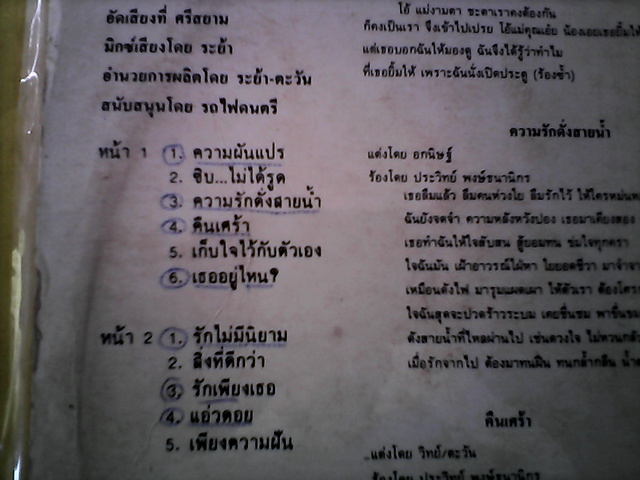 อัดเสียงที่ ศรีสยาม
มิกซ์เสียงโดย ระย้า
อำนวยการผลิตโดย ระย้า-ตะวัน
สนับสนุนโดย รถไฟดนตรี
หน้า 1 1. ความผันแปร
2. ซิบ...ไม่ได้รูด
3. ความรักดั่งสายน้ำ
4. คืนเศร้า
5. เก็บใจไว้กับตัวเอง
6. เธออยู่ไหน?
หน้า 2 1. รักไม่มีนิยาม
2. สิ่งที่ดีกว่า
3. รักเพียงเธอ
4. แอ่วดอย
5. เพียงความฝัน
โอ้ แม่งามตา ชะตาเราคงต้องกัน
ก็คงเป็นเรา จึงเข้าไปเปรย โอ้แม่คุณเอ๋ย น้องเอยเธอยิ้มให้
แต่เธอบอกฉันให้มองดู ฉันจึงได้รู้ว่าทำไม
ที่เธอยิ้มให้ เพราะฉันนั่งเปิดประตู (ร้องซ้ำ)
ความรักดั่งสายน้ำ
แต่งโดย อกนิษฐ์
ร้องโดย ประวิทย์ พงษ์ธนานิกร
เธอลืมแล้ว ลืมคนห่วงใย ลืมรักไว้ ให้ใครหม่นหมอง
ฉันยังจดจำ ความหลังหวังปอง เธอมาเคียงสอง
เธอทำฉันให้ใจสับสน สู้ยอมทน ช่มใจทุกครา
ใจฉันมัน เฝ้าอาวรณ์ใฝ่หา
เหมือนดังไฟ มารุมแผดเผา ให้ตัวเรา ต้อง
ใจฉันสุดจะปวดร้าวระบม เคยชื่นชม
ดังสายน้ำที่ไหลผ่านไป เช่นดวงใจ ไม่หวนกลับ
เมื่อรักจากไป ต้องมาทนฝืน ทนกล้ำกลืน
คืนเศร้า
แต่งโดย วิทย์/ตะวัน
ร้องโดย ประวิทย์ พงษ์ธนานิกร